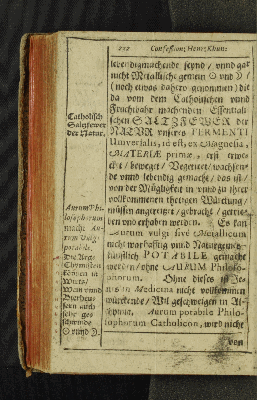 212 Confessium; Henr; Khun:
lebendigmachende seynd / vnnd gar
nicht Metallisch: gemein ☉ vnd ☽ /
(noch etwas dahero genommen) die
da vom dem Catholischen vnnd
Fruchtbahr machenden Essentiali-
schen SALTZFEWER der
NATUR vnseres FERMENTI
Universalis, id est, ex Magnesia,
MATERIÆ primæ, erst erwe-
cket / beweget / Vegetiert / wachsen-
de vnnd lebendig gemacht / das ist /
von der Mügligkeit in vnnd zu ihrer
vollkommenen thetigen Würckung /
müssen angereitzt / gebracht / getrie-
ben vnd erhaben werden. Es kan
Aurum vulgi sive Metallicum
nicht warhafftig vnnd Naturgemeß
POTABILE gemacht
werden / ohne AURUM Philoso-
phorum. Ohne dieses ist Je-
nes in Medicina nicht vollkommen
würckende / Wil geschweigen in Al-
chymia. Aurum potabile Philo-
sophorum Catholicon, wird nicht
von
Catholisch
Saltzfewer
der Natur.
Aurum Phi-
losophorum
macht Au-
rum vulgi
potabile.
Die Artz-
Wein vnnd
sche ges-
schwinde
☉ vnnd ☽.